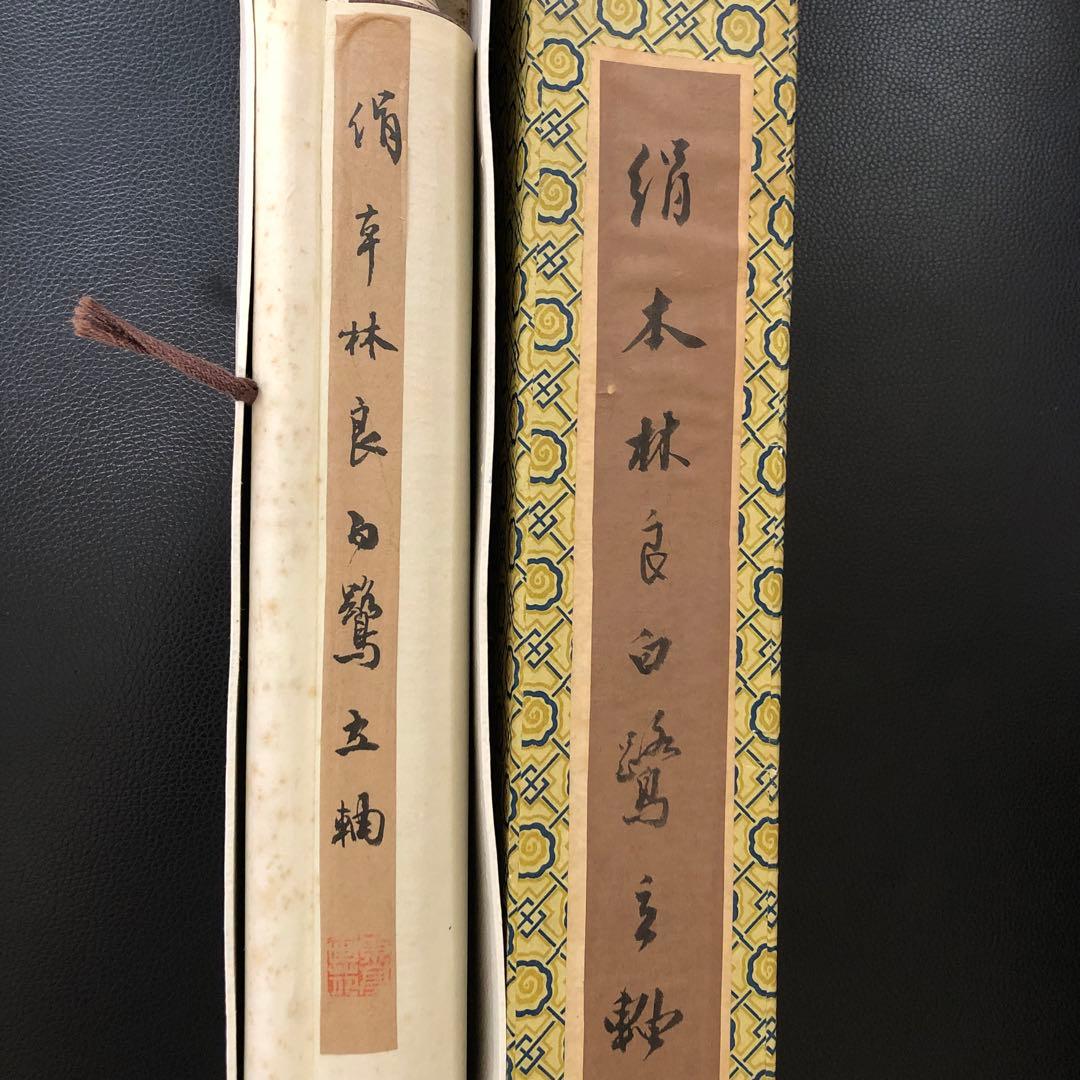 絹本林良白鷺立軸
絹本林良白鷺立軸